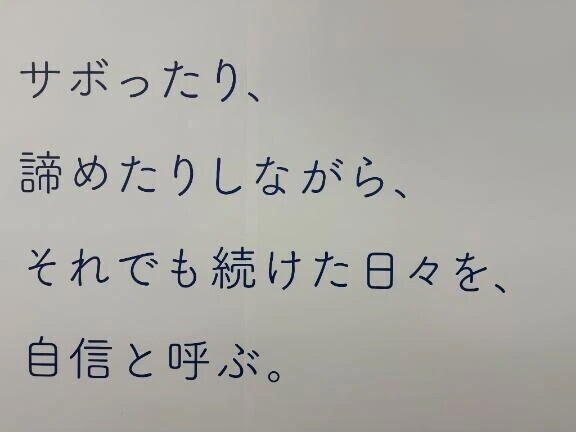 サボったり、
諦めたりしながら、
それでも続けた日々を、
自信と呼ぶ。